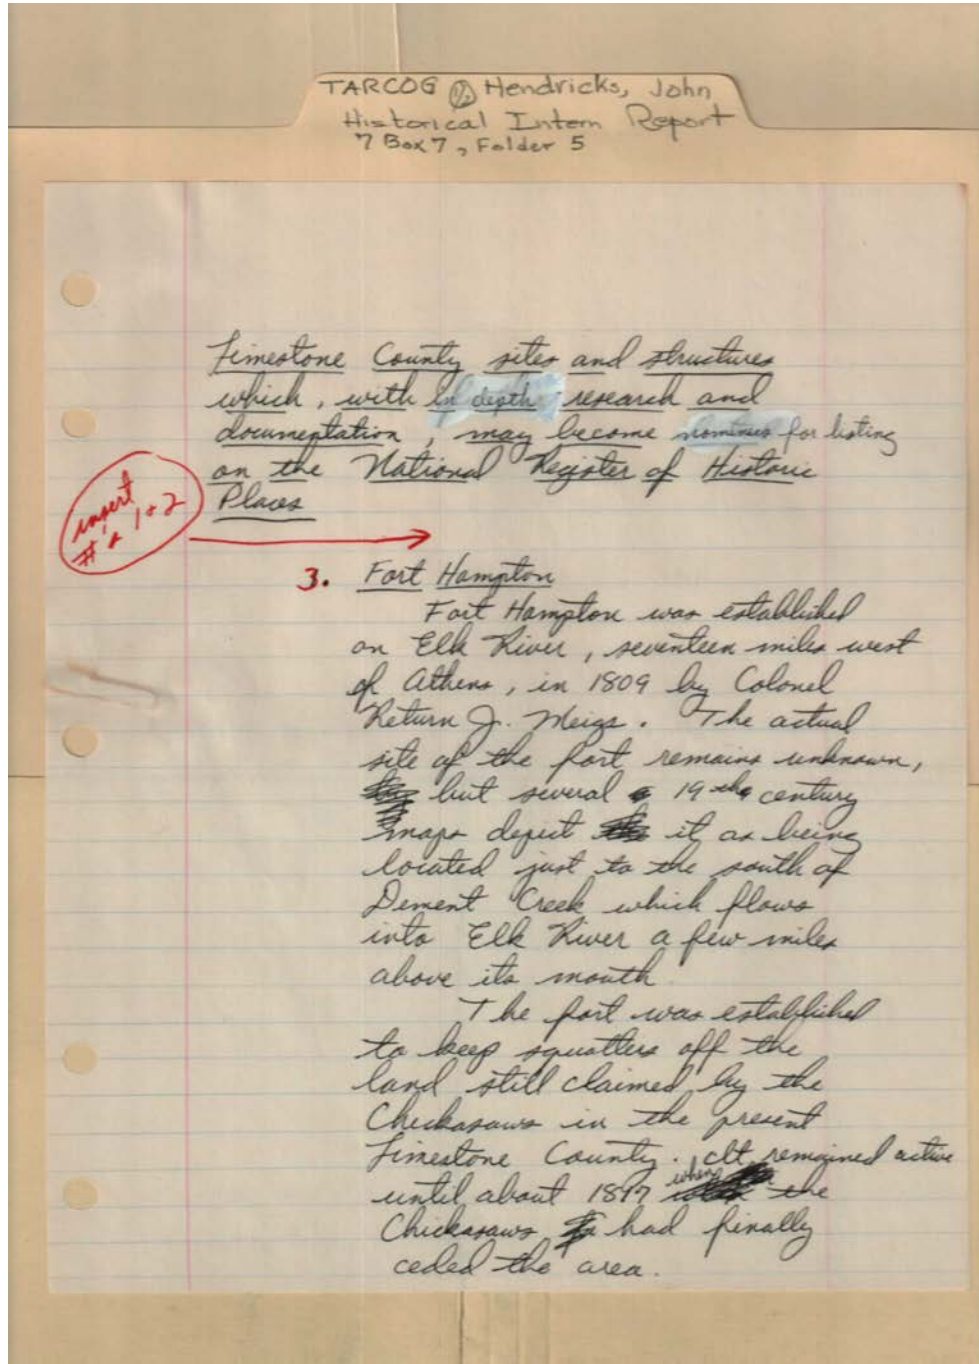 TARCOG 1/2 Hendricks, John
Historical Intern Report
7 Box 7, Folder 5
Limestone County sites and structures
which, with in depth research and
documentation, may become nominees for listing
on the National Register of Historic
Places
insert
#s 1+2
3. Fort Hampton
Fort Hampton was established
on Elk River, seventeen miles west
of Athens, in 1809 by Colonel
Return J. Meigs. The actual
site of the fort remains unknown,
but several 19th century
maps depict it as being
located just to the south of
Dement Creek which flows
into Elk River a few miles
above its mouth.
The fort was established
to keep squatters off the
land still claimed by the
Chickasaws in the present
Limestone County. It remained active
until about 1817 when the
Chickasaws had finally
ceded the area.